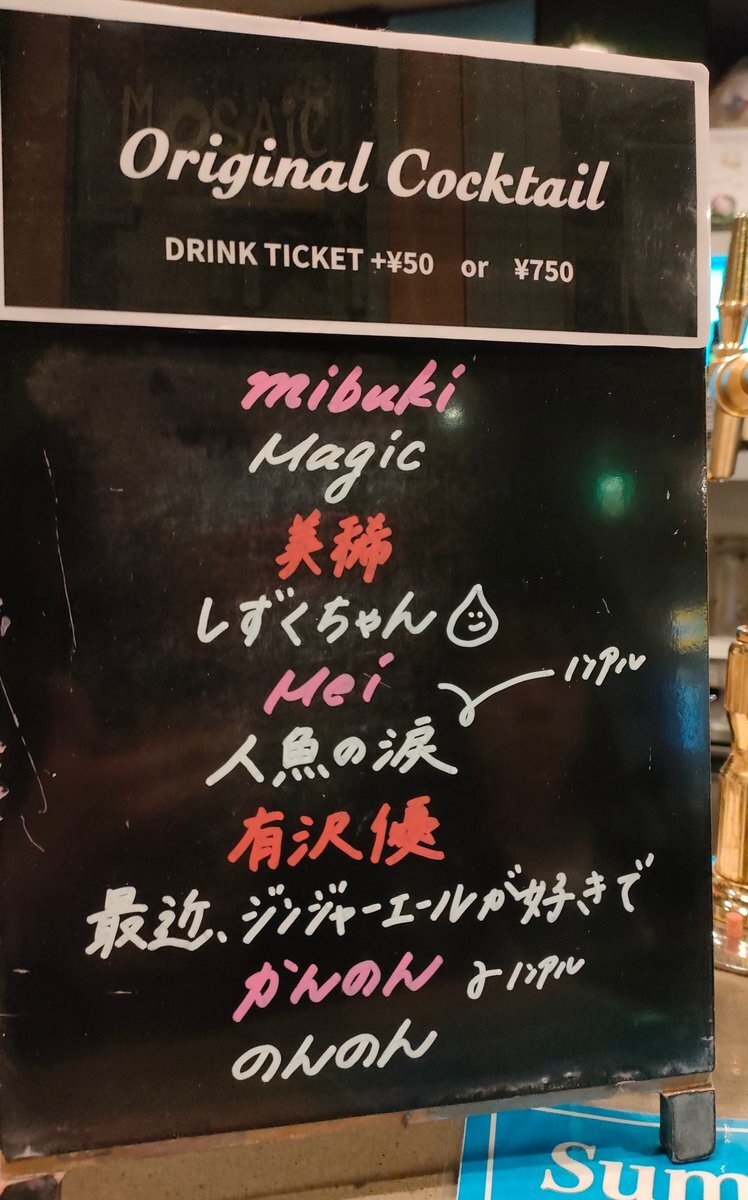 MOSAiC
Original Cocktail
DRINK TICKET +¥50 or ¥750
mibuki
Magic
美稀
しずくちゃん
Mei
ノンアル
人魚の涙
有沢優
最近、ジンジャーエールが好きで
かんのん
ノンアル
のんのん
Sum